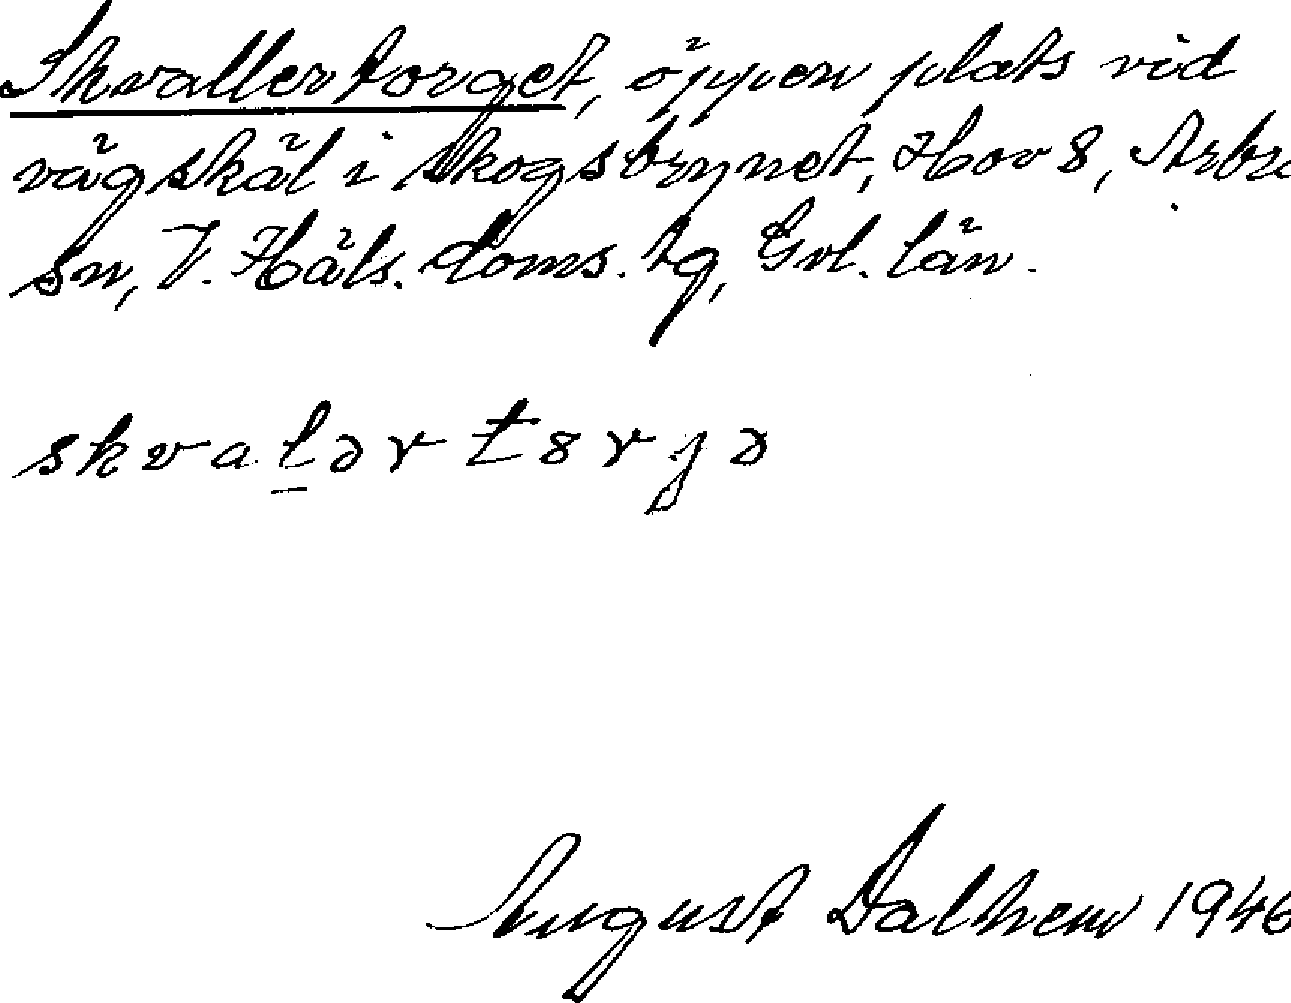 Skvallertorget, öppen plats vid
vägskäl i skogsbrynet, Hov 8, Arbrå
sn, V. Häls. doms. tg, Gvl. län.
skvaḻər tɵrjə
August Dalhem 1946